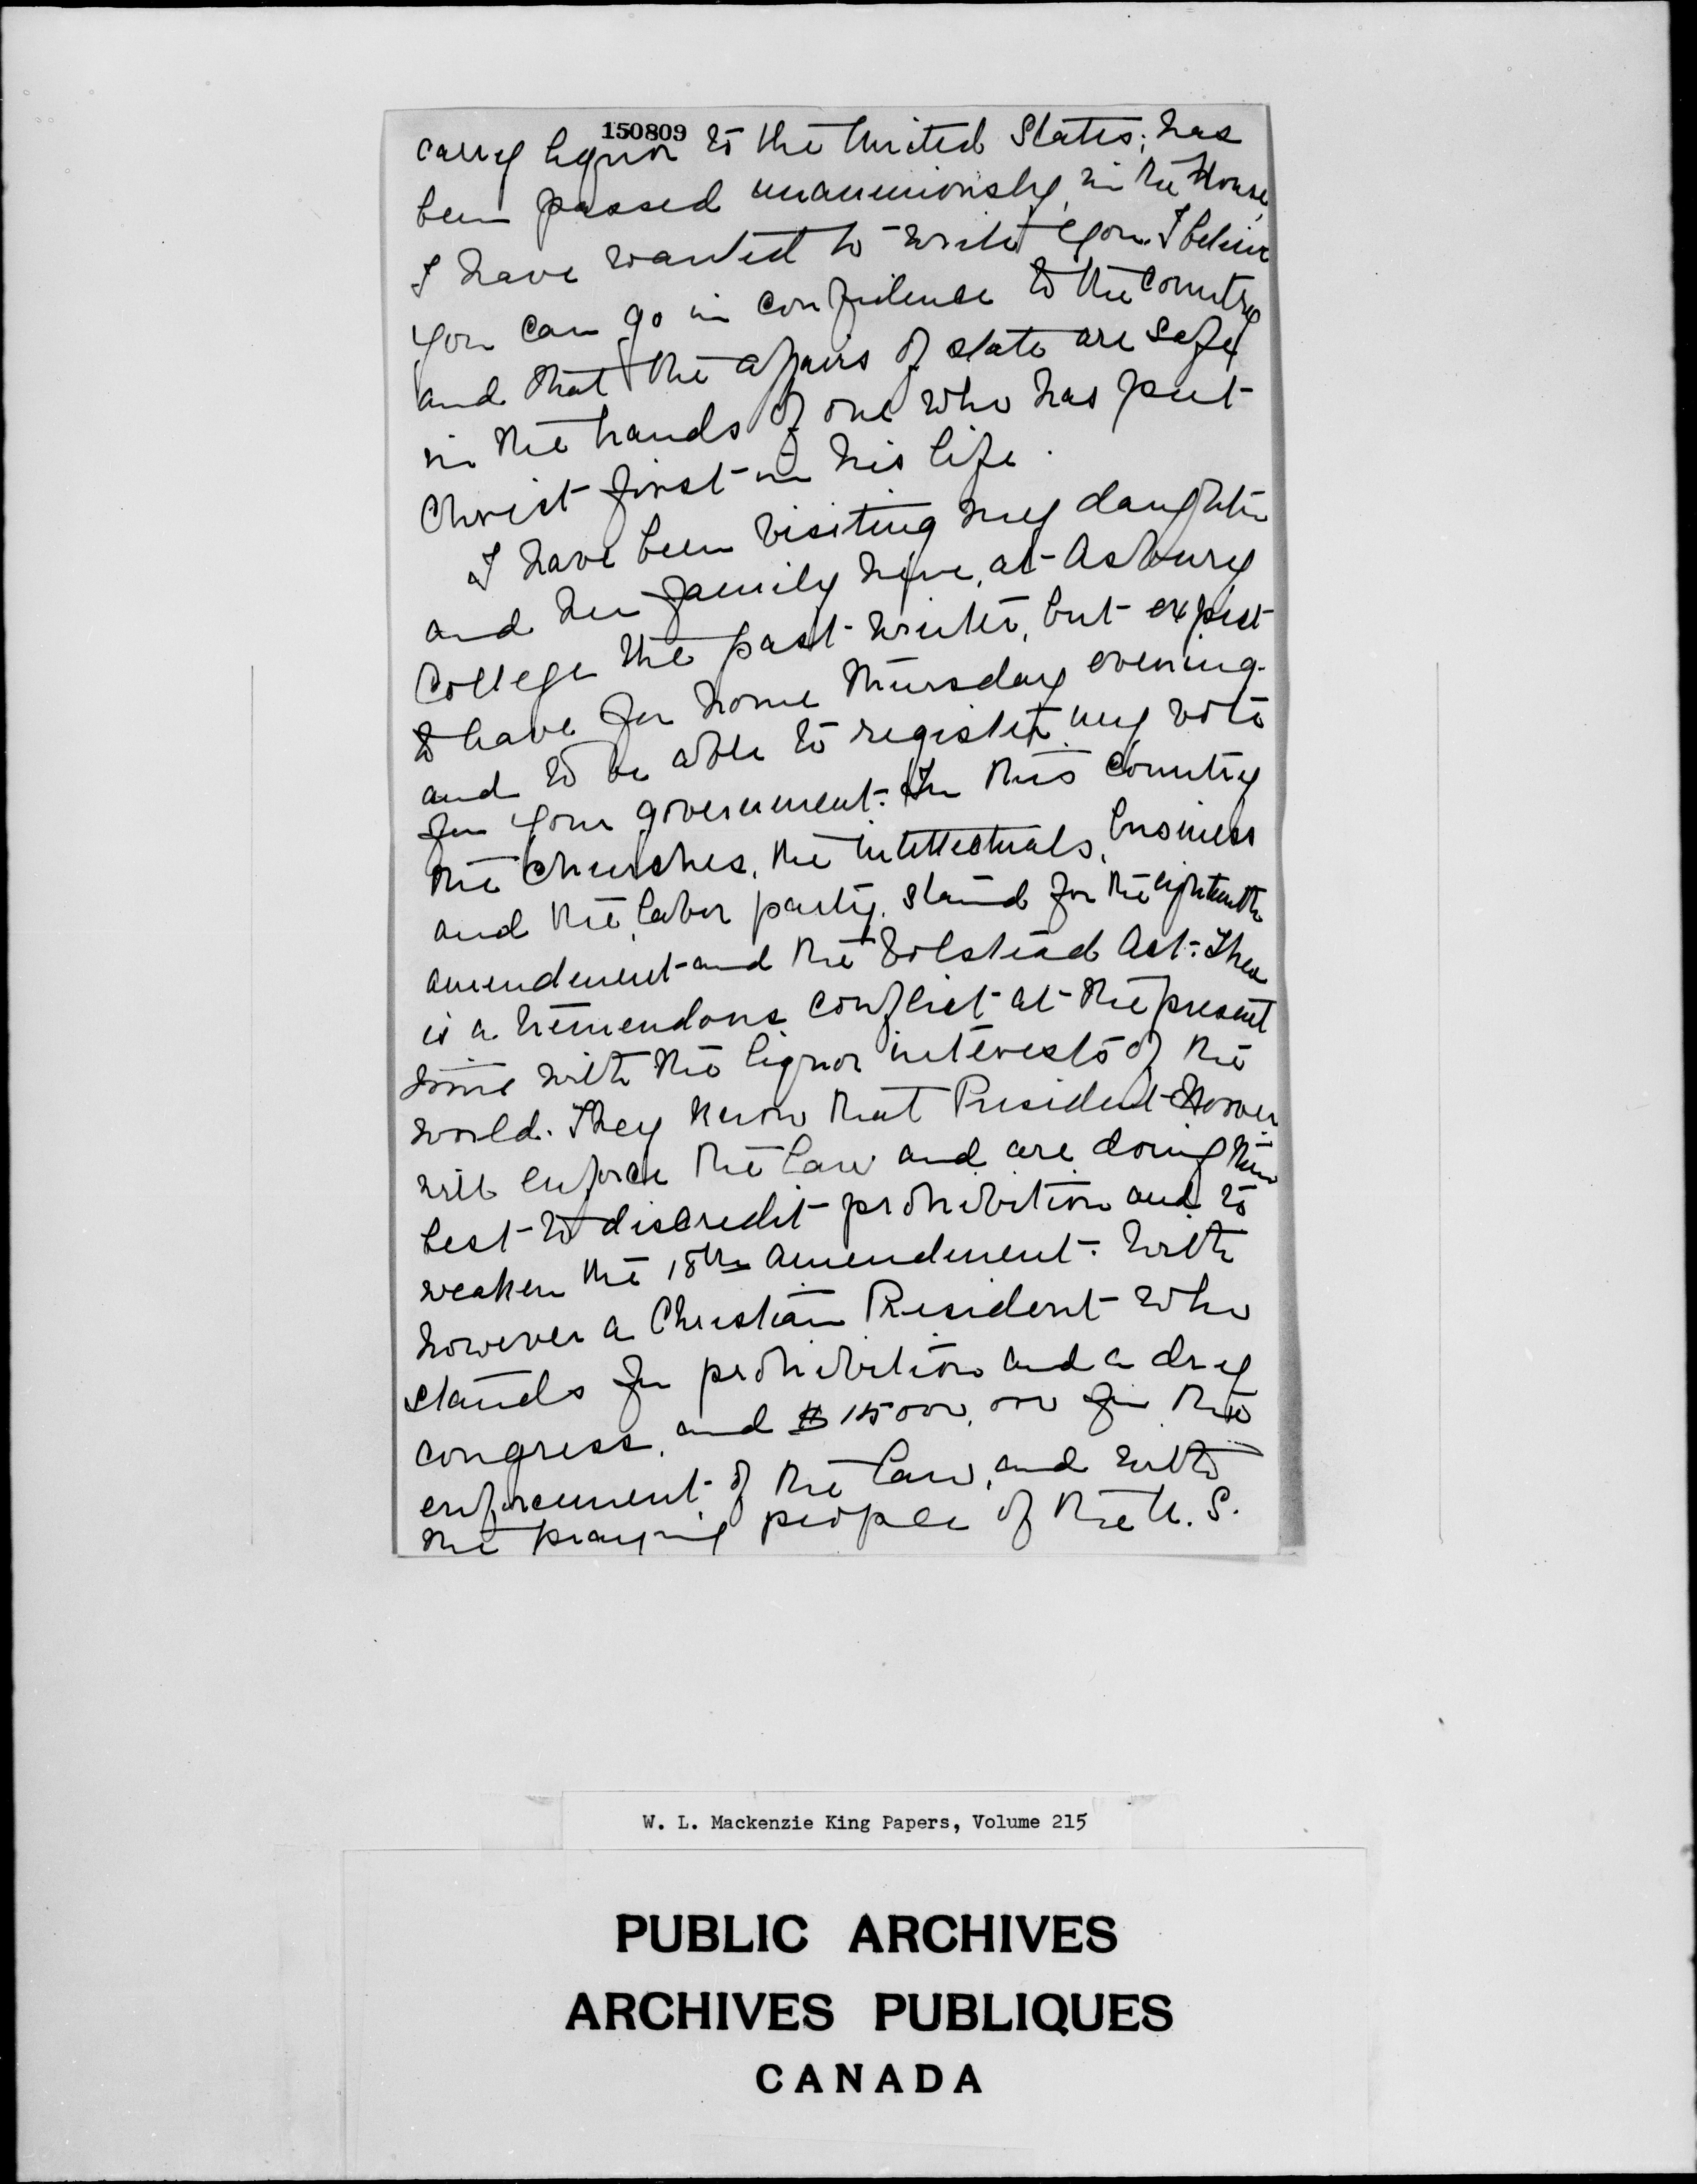 150809
carry liquor to the United States, has
been passed unanimously, in the House,
I have wanted to write you. I believe
you can go in confidence to the Country
and that the affairs of state are safe
in the hands of one who has put
Christ first in his life.
I have been visiting my daughter
and her family here, at Asbury
College the past winter, but expect
to leave for home Thursday evening
and to be able to register my vote
for your government. In this country
the Churches, the intellectuals, business
and the labor party, stand for the eighteenth
amendment and the Volstead Act. There
is a tremendous conflict at the present
time with the liquor interests of the
world. They know that President Hoover
will enforce the law and are doing their
best to discredit prohibition and to
weaken the 18th amendment. With
however a Christian President who
stands for prohibition and a dry
congress, and $15000,000 for the
enforcement of the law, and with
the praying people of the U.S.
W. L. Mackenzie King Papers, Volume 215
PUBLIC ARCHIVES
ARCHIVES PUBLIQUES
CANADA